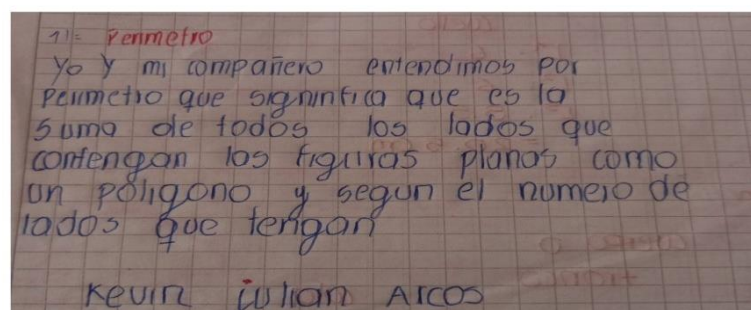 1)= Perimetro
Yo y mi compañero entendimos por
perimetro que signinfica que es la
suma de todos los lados que
contengan los figuras planas como
un poligono y segun el numero de
lados que tengan
Kevin iulian Arcos